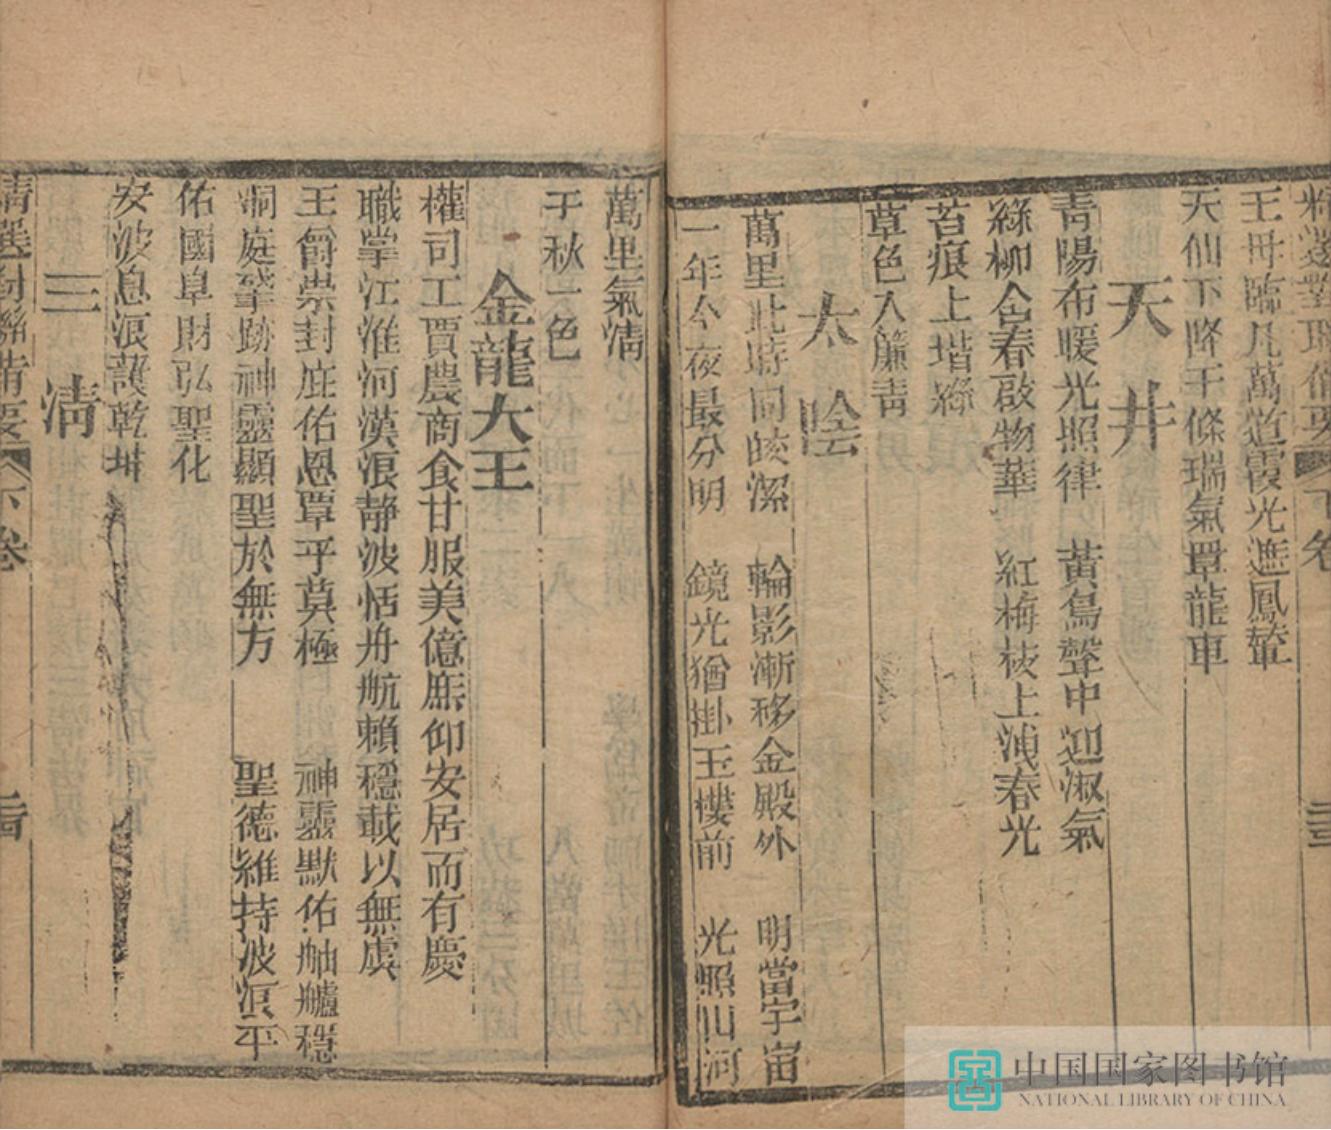 精選對聯備要 下卷
王母臨凡萬道霞光遮鳳輦
天仙下降千條瑞氣罩龍車
天井
青陽布暖光照律 黃鳥聲中迎淑氣
綠柳舍春啟物華 紅梅枝上浦春光
苔痕上堦綠
草色入簾青
太陰
萬里此時同皎潔 輪影漸移金殿外 明當宇宙
一年今夜最分明 鏡光猶掛玉樓前 光照山河
萬里氣清
千秋一色
金龍大王
權司工賈農商食甘服美億庶仰安居而有慶
職掌江淮河漢浪靜波恬舟航賴穩載以無虞
王爵崇封庇佑恩覃乎莫極 神靈默佑舳艫穩
洞庭發跡神靈顯聖於無方 聖德維持波浪平
佑國阜財弘聖化
安波息浪護乾坤
三清
精選對聯備要 下卷
中国国家图书馆
NATIONAL LIBRARY OF CHINA